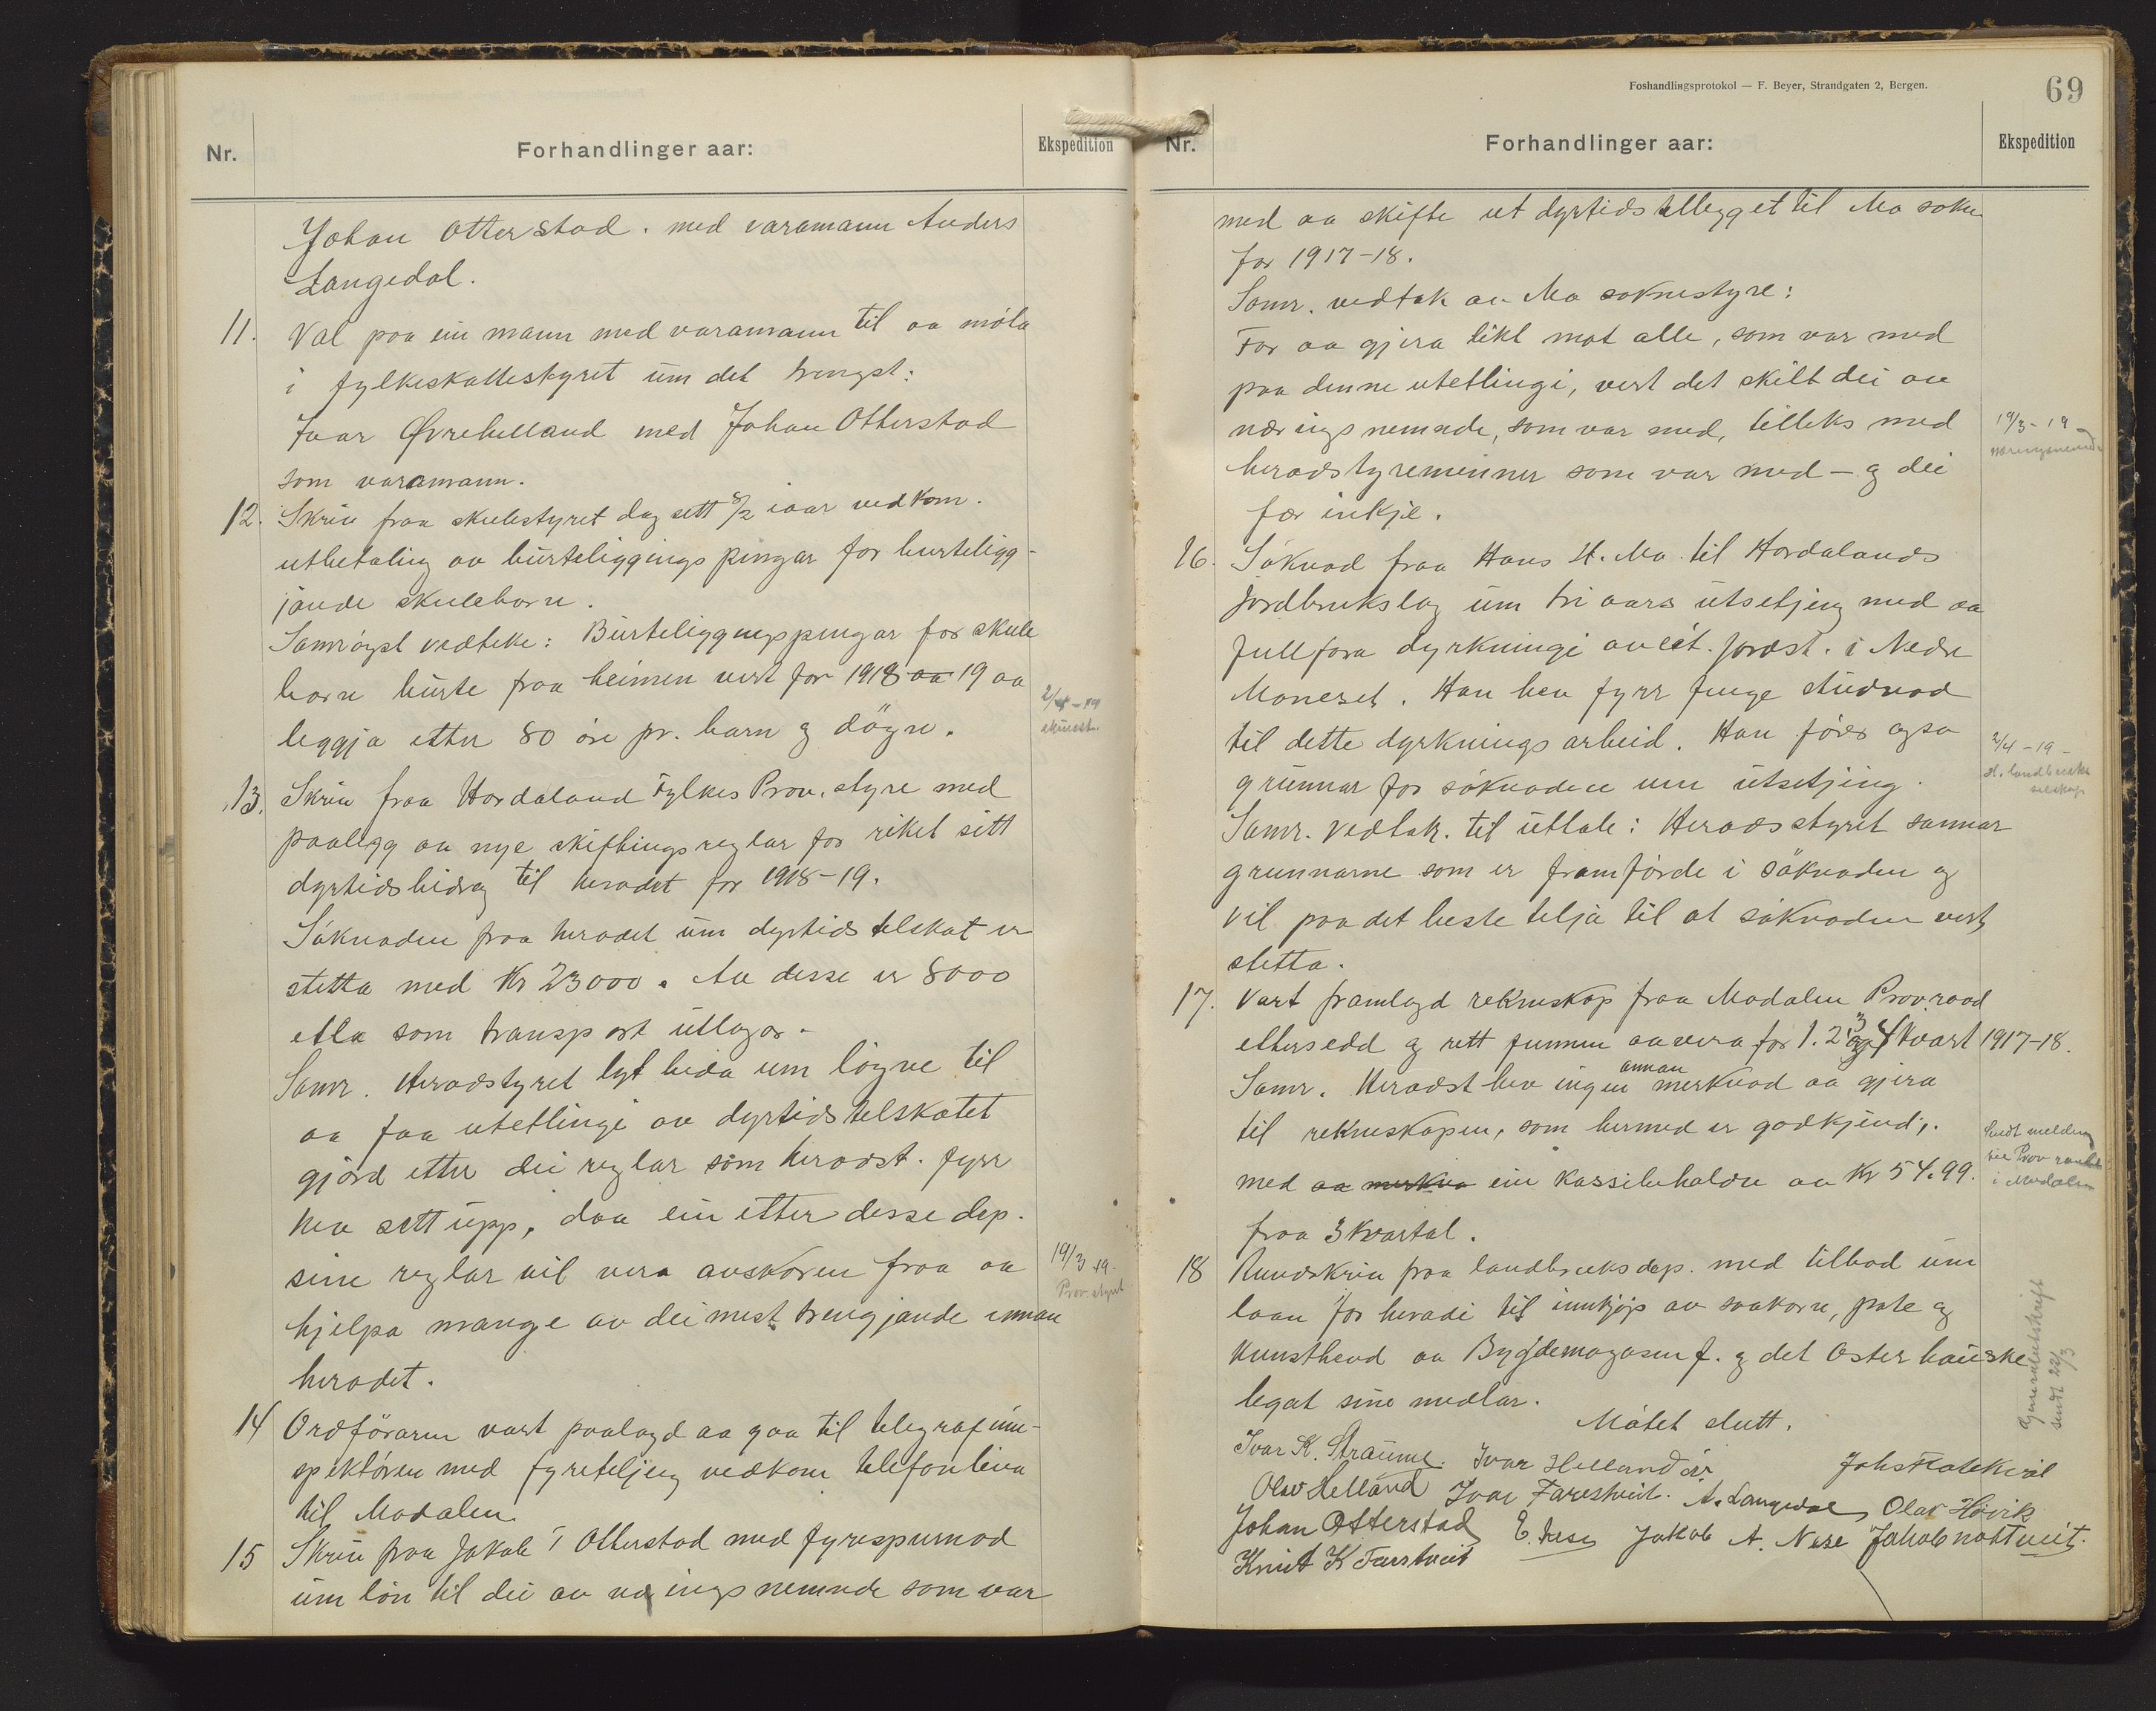 Nr.
Forhandlinger aar:
Ekspedition
Johan Otterstad. med varamann Anders
Langedal.
11. Val paa ein mann med varamann til aa møta
i fylkeskattestyret um det trengst:
Ivar Øvrehelland med Johan Otterstad
som varamann.
12. Skriv fraa skulestyret dagsett 8/2 iaar vedkom.
utbetaling av burteliggings pengar for burteligg-
jande skuleborn.
Samrøyst vedteke: Burteliggingspengar for skule
born burte fraa heimen vert for 1918 aa 19 aa
leggja etter 80 øre pr. barn og døgn.
2/4-19
skulest.
13. Skriv fraa Hordaland Fylkes Prov. styre med
paalegg aa nye skiftingsreglar for riket sitt
dyrtidsbidrag til heradet for 1918-19.
Søknaden fraa heradet um dyrtids telskot er
stetta med Kr 23000. Av desse er 8000
etla som transport utlogor.
Samr. Heradstyret lyt beda um løyve til
aa faa utetlingi av dyrtidstelskotet
gjord etter dei reglar som heradst. fyrr
hev sett upp, daa ein etter desse dep.
sine reglar vil vera avskoren fraa aa
hjelpa mange av dei mest trengjande innan
heradet.
19/3 19.
Prov. styret
14 Ordføraren vart paalagd aa gaa til telegrafinn-
spektøren med fyreteljing vedkom telefonleina
til Modalen.
15 Skriv fraa Jakob T Otterstad med fyrespurnad
um løn til dei av næringsnemnde som var
Foshandlingsprotokol — F. Beyer, Strandgaten 2, Bergen.
69
Nr.
Forhandlinger aar:
Ekspedition
med aa skifte ut dyrtidstillegget til Mo sokn
for 1917-18.
Samr. vedtak av Mo soknestyre:
For aa gjera likt mot alle, som var med
paa denne utetlingi, vert det skilt dei av
næringsnemnde, som var med, tilleks med
heradstyremenner som var med - og dei
fær inkje.
19/3-19
næringsnemnde
16. Søknad fraa Hans H. Mo til Hordalands
Jordbrukslag um tri aars utsetjing med aa
fullføra dyrkningi av eit. jordst. i Nedre
Moneset. Han hev fyrr fenge studnad
til dette dyrkningsarbeid. Han fører ogso
grunnar for søknaden um utsetjing.
Samr. vedtak. til uttale: Heradsstyret sannar
grunnarne som er framførde i søknaden og
vil paa det beste telja til at søknaden vert
stetta.
2/4-19-
H. landbruks
selskap
17. Vart framlagd rekneskap fraa Modalen Provraad
ettersedd og rett funnen aa vera for 1. 2 3 og 4 Kvart 1917-18.
annan
Samr. Heradst hev ingen merknad aa gjera
til rekneskapen, som hermed er godkjend,.
med aa merkna ein kassibehaldn aa Kr 54.99.
fraa 3 Kvartal.
Sendt melding
til Prov raadet
i Modalen
18 Rundskriv fraa landbruksdep. med tilbod um
laan for heradi til innkjøp av saakorn, pote og
Kunsthevd av Bygdemagasinf. og det Osterhauske
legat sine midlar.
Gjenpartskrift
sendt 22/3
Møtet slutt.
Ivar K. Straume. Ivar Helland Johs Flatekvål
Olav Helland Ivar Farestveit. A. Langedal Olav Høvik
Johan Otterstad E. Nese Jakob A. Nese Jakob nottveit.
Knut K Farestveit